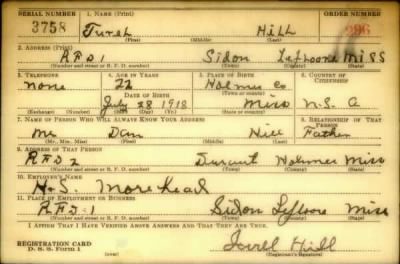 SERIAL NUMBER 1. NAME (Print) ORDER NUMBER
3758 Hill 296
(First) (Middle) (Last)
2. ADDRESS (Print)
RFD1 Sidon Lefloore Miss
(Number and street or R. F. D. number) (Town) (County) (State)
3. TELEPHONE 4. AGE IN YEARS 5. PLACE OF BIRTH 6. COUNTRY OF CITIZENSHIP
none 22 Holmes Co
DATE OF BIRTH
July 28 1918 Miss U.S.A
(Exchange) (Number) (Mo.) (Day) (Yr.) (State or country)
7. NAME OF PERSON WHO WILL ALWAYS KNOW YOUR ADDRESS 8. RELATIONSHIP OF THAT PERSON
Mr Dan Hill Father
(Mr., Mrs., Miss) (First) (Middle) (Last)
9. ADDRESS OF THAT PERSON
RFD2 Durant Holmes Miss
(Number and street or R. F. D. number) (Town) (County) (State)
10. EMPLOYER'S NAME
H.S. Morehead
11. PLACE OF EMPLOYMENT OR BUSINESS
RFD-1 Sidon Lefloore Miss
(Number and street or R. F. D. number) (Town) (County) (State)
I AFFIRM THAT I HAVE VERIFIED ABOVE ANSWERS AND THAT THEY ARE TRUE.
REGISTRATION CARD
D. S. S. Form 1 Hill
(over) (Registrant's Signature)